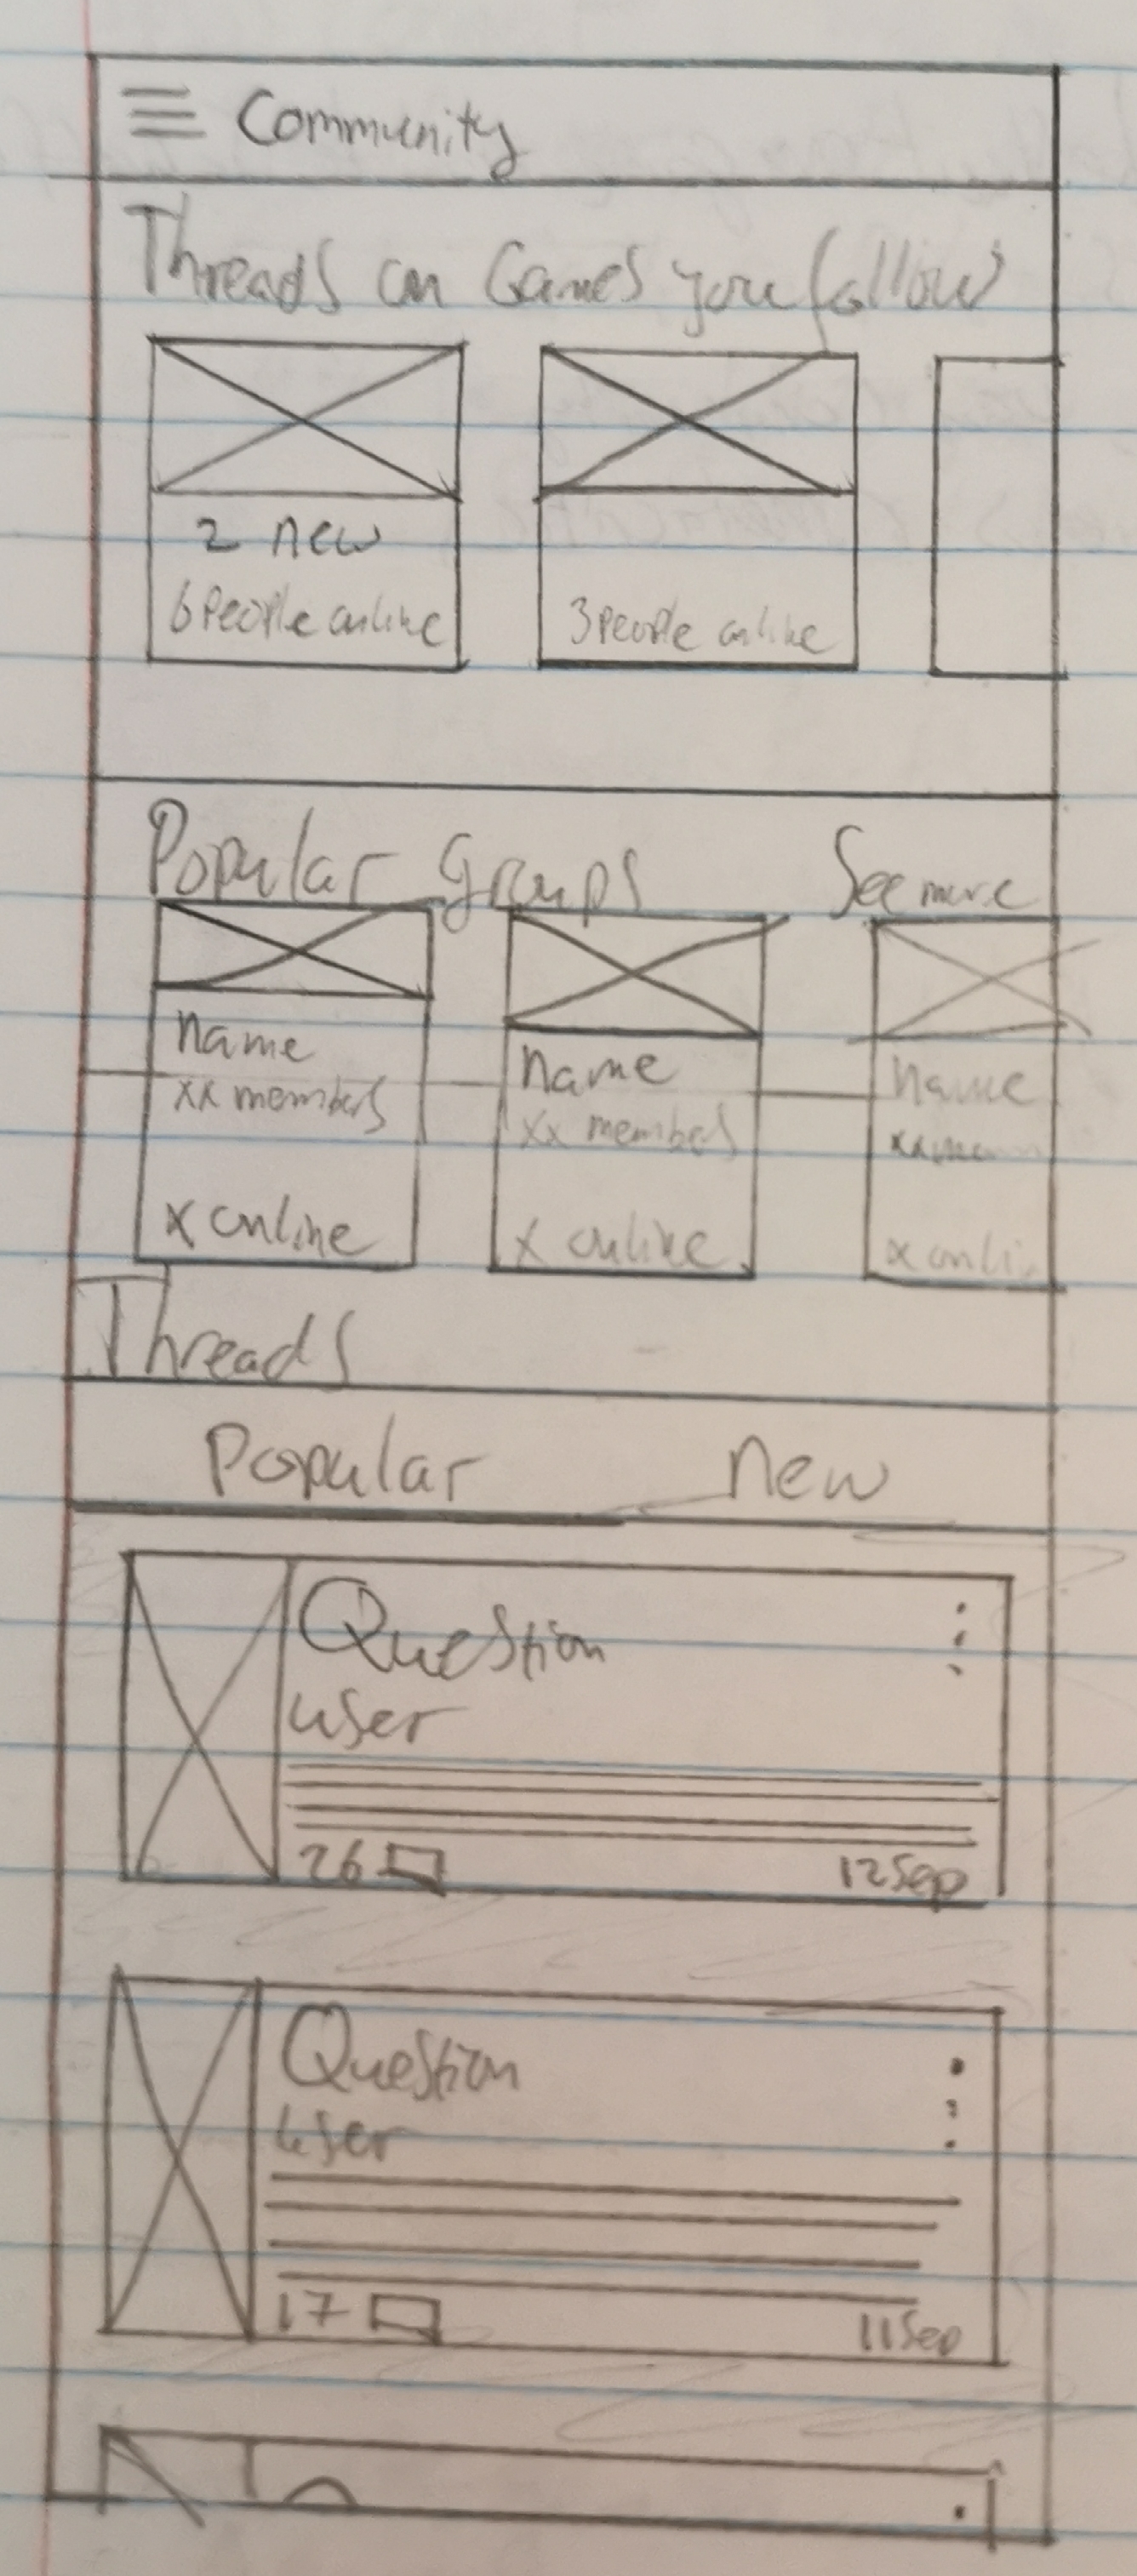 Community
Threads on Games you follow
2 new
6 People online
3 people online
Popular groups
See more
name
xx members
x online
name
xx members
x online
name
xx mem
x onli
Threads
Popular
new
Question
user
26
12 Sep
Question
user
17
11 Sep